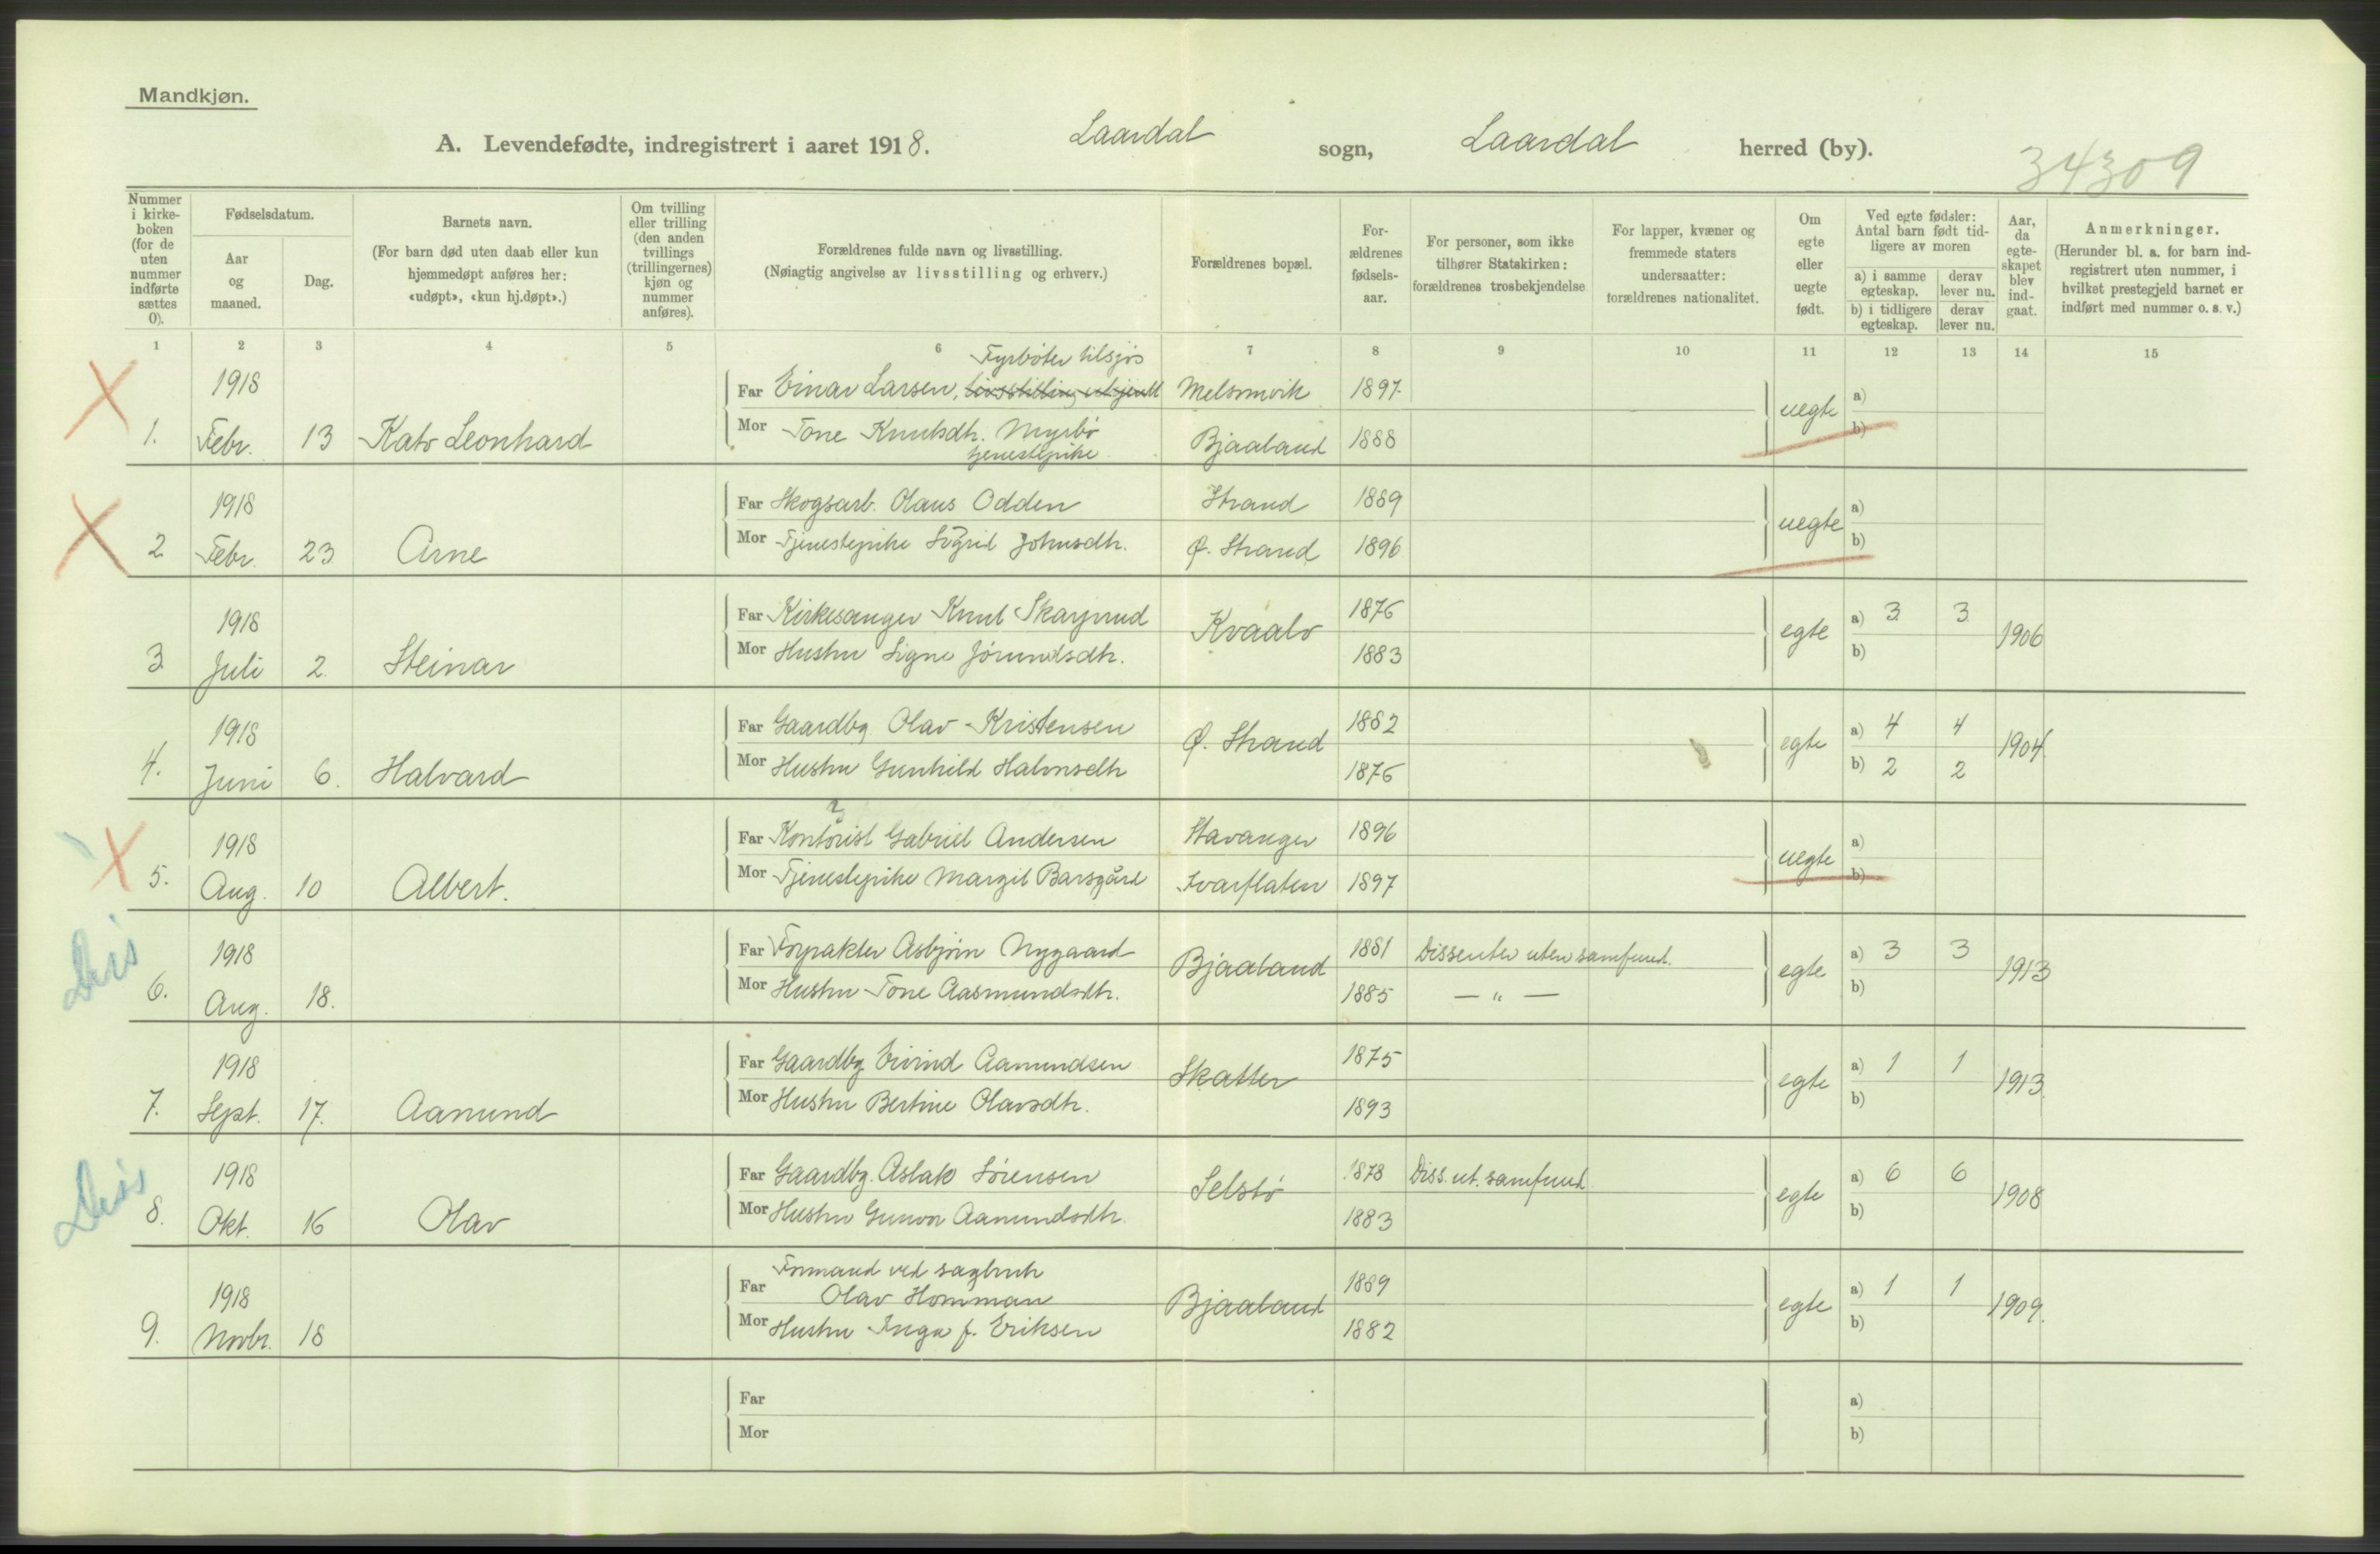 Mandkjøn.
A. Levendefødte, indregistrert i aaret 1918. Laardal sogn, Laardal herred (by).
34309
Nummer i kirke-boken (for de uten nummer indførte sættes 0).
Fødselsdatum.
Aar og maaned.
Dag.
Barnets navn.
(For barn død uten daab eller kun hjemmedøpt anføres her: «udøpt», «kun hj.døpt».)
Om tvilling eller trilling (den anden tvillings (trillingernes) kjøn og nummer anføres).
Forældrenes fulde navn og livsstilling.
(Nøiagtig angivelse av livsstilling og erhverv.)
Forældrenes bopæl.
For-ældrenes fødsels-aar.
For personer, som ikke tilhører Statskirken: forældrenes trosbekjendelse
For lapper, kvæner og fremmede staters undersaatter: forældrenes nationalitet.
Om egte eller uegte født.
Ved egte fødsler: Antal barn født tid-ligere av moren
a) i samme egteskap. derav lever nu.
b) i tidligere egteskap. derav lever nu.
Aar, da egte-skapet blev ind-gaat.
Anmerkninger.
(Herunder bl. a. for barn ind-registrert uten nummer, i hvilket prestegjeld barnet er indført med nummer o. s. v.)
1 2 3 4 5 6 7 8 9 10 11 12 13 14 15
Fyrbøter tilsjøs
1918 Far Einar Larsen, livsstilling ukjendt Melsomvik 1897 a)
1. Febr. 13 Kato Leonhard Mor Tone Knutsdtr. Myrbø Bjaaland 1888 uegte b)
tjenestepike
1918 Far Skogsarb. Olaus Odden Strand 1889 a)
2 Febr. 23 Arne Mor Tjenestepike Sigrid Johnsdtr. Ø. Strand 1896 uegte b)
1918 Far Kirkesanger Knut Skarprud Kvaalo 1876 a) 3 3
3 Juli 2. Steinar Mor Hustru Signe Jørundsdtr. 1883 egte b) 1906
1918 Far Gaardbr. Olav Kristensen Ø. Strand 1882 a) 4 4
4. Juni 6. Halvard Mor Hustru Gunhild Halvorsdtr 1876 egte b) 2 2 1904.
1918 Far Kontorist Gabriel Andersen Stavanger 1896 a)
5. Aug. 10 Albert. Mor Tjenestepike Margit Barsgård Svarflaten 1897 uegte b)
Dis
1918 Far Forpakter Asbjørn Nygaard Bjaaland 1881 Dissenter uten samfund. a) 3 3
6. Aug. 18. Mor Hustru Tone Aasmundsdtr. 1885 — " — egte b) 1913
1918 Far Gaardbr. Eivind Aanundsen Skatter 1875 a) 1 1
7. Sept. 17. Aanund Mor Hustru Bertine Olavsdtr. 1893 egte b) 1913.
Diss
1918 Far Gaardbr. Aslak Sørensen Selstø 1878 Diss. ut. samfund a) 6 6
8. Okt. 16 Olav Mor Hustru Gunvor Aanundsdtr. 1883 egte b) 1908
Formand ved sagbruk
1918 Far Olav Homman Bjaaland 1889 a) 1 1
9. Novbr. 18 Mor Hustru Inga f. Eriksen 1882 egte b) 1909.
Far a)
Mor b)